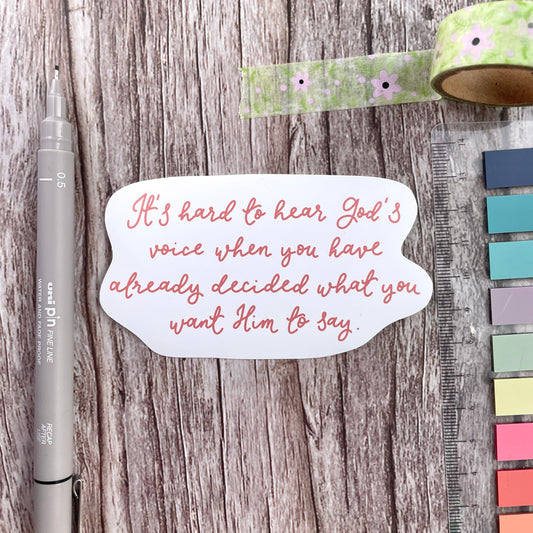 It's hard to hear God's
voice when you have
already decided what you
want Him to say.
0.5
uni pin FINE LINE
WATER AND FADE PROOF
RECAP
AFTER
USE